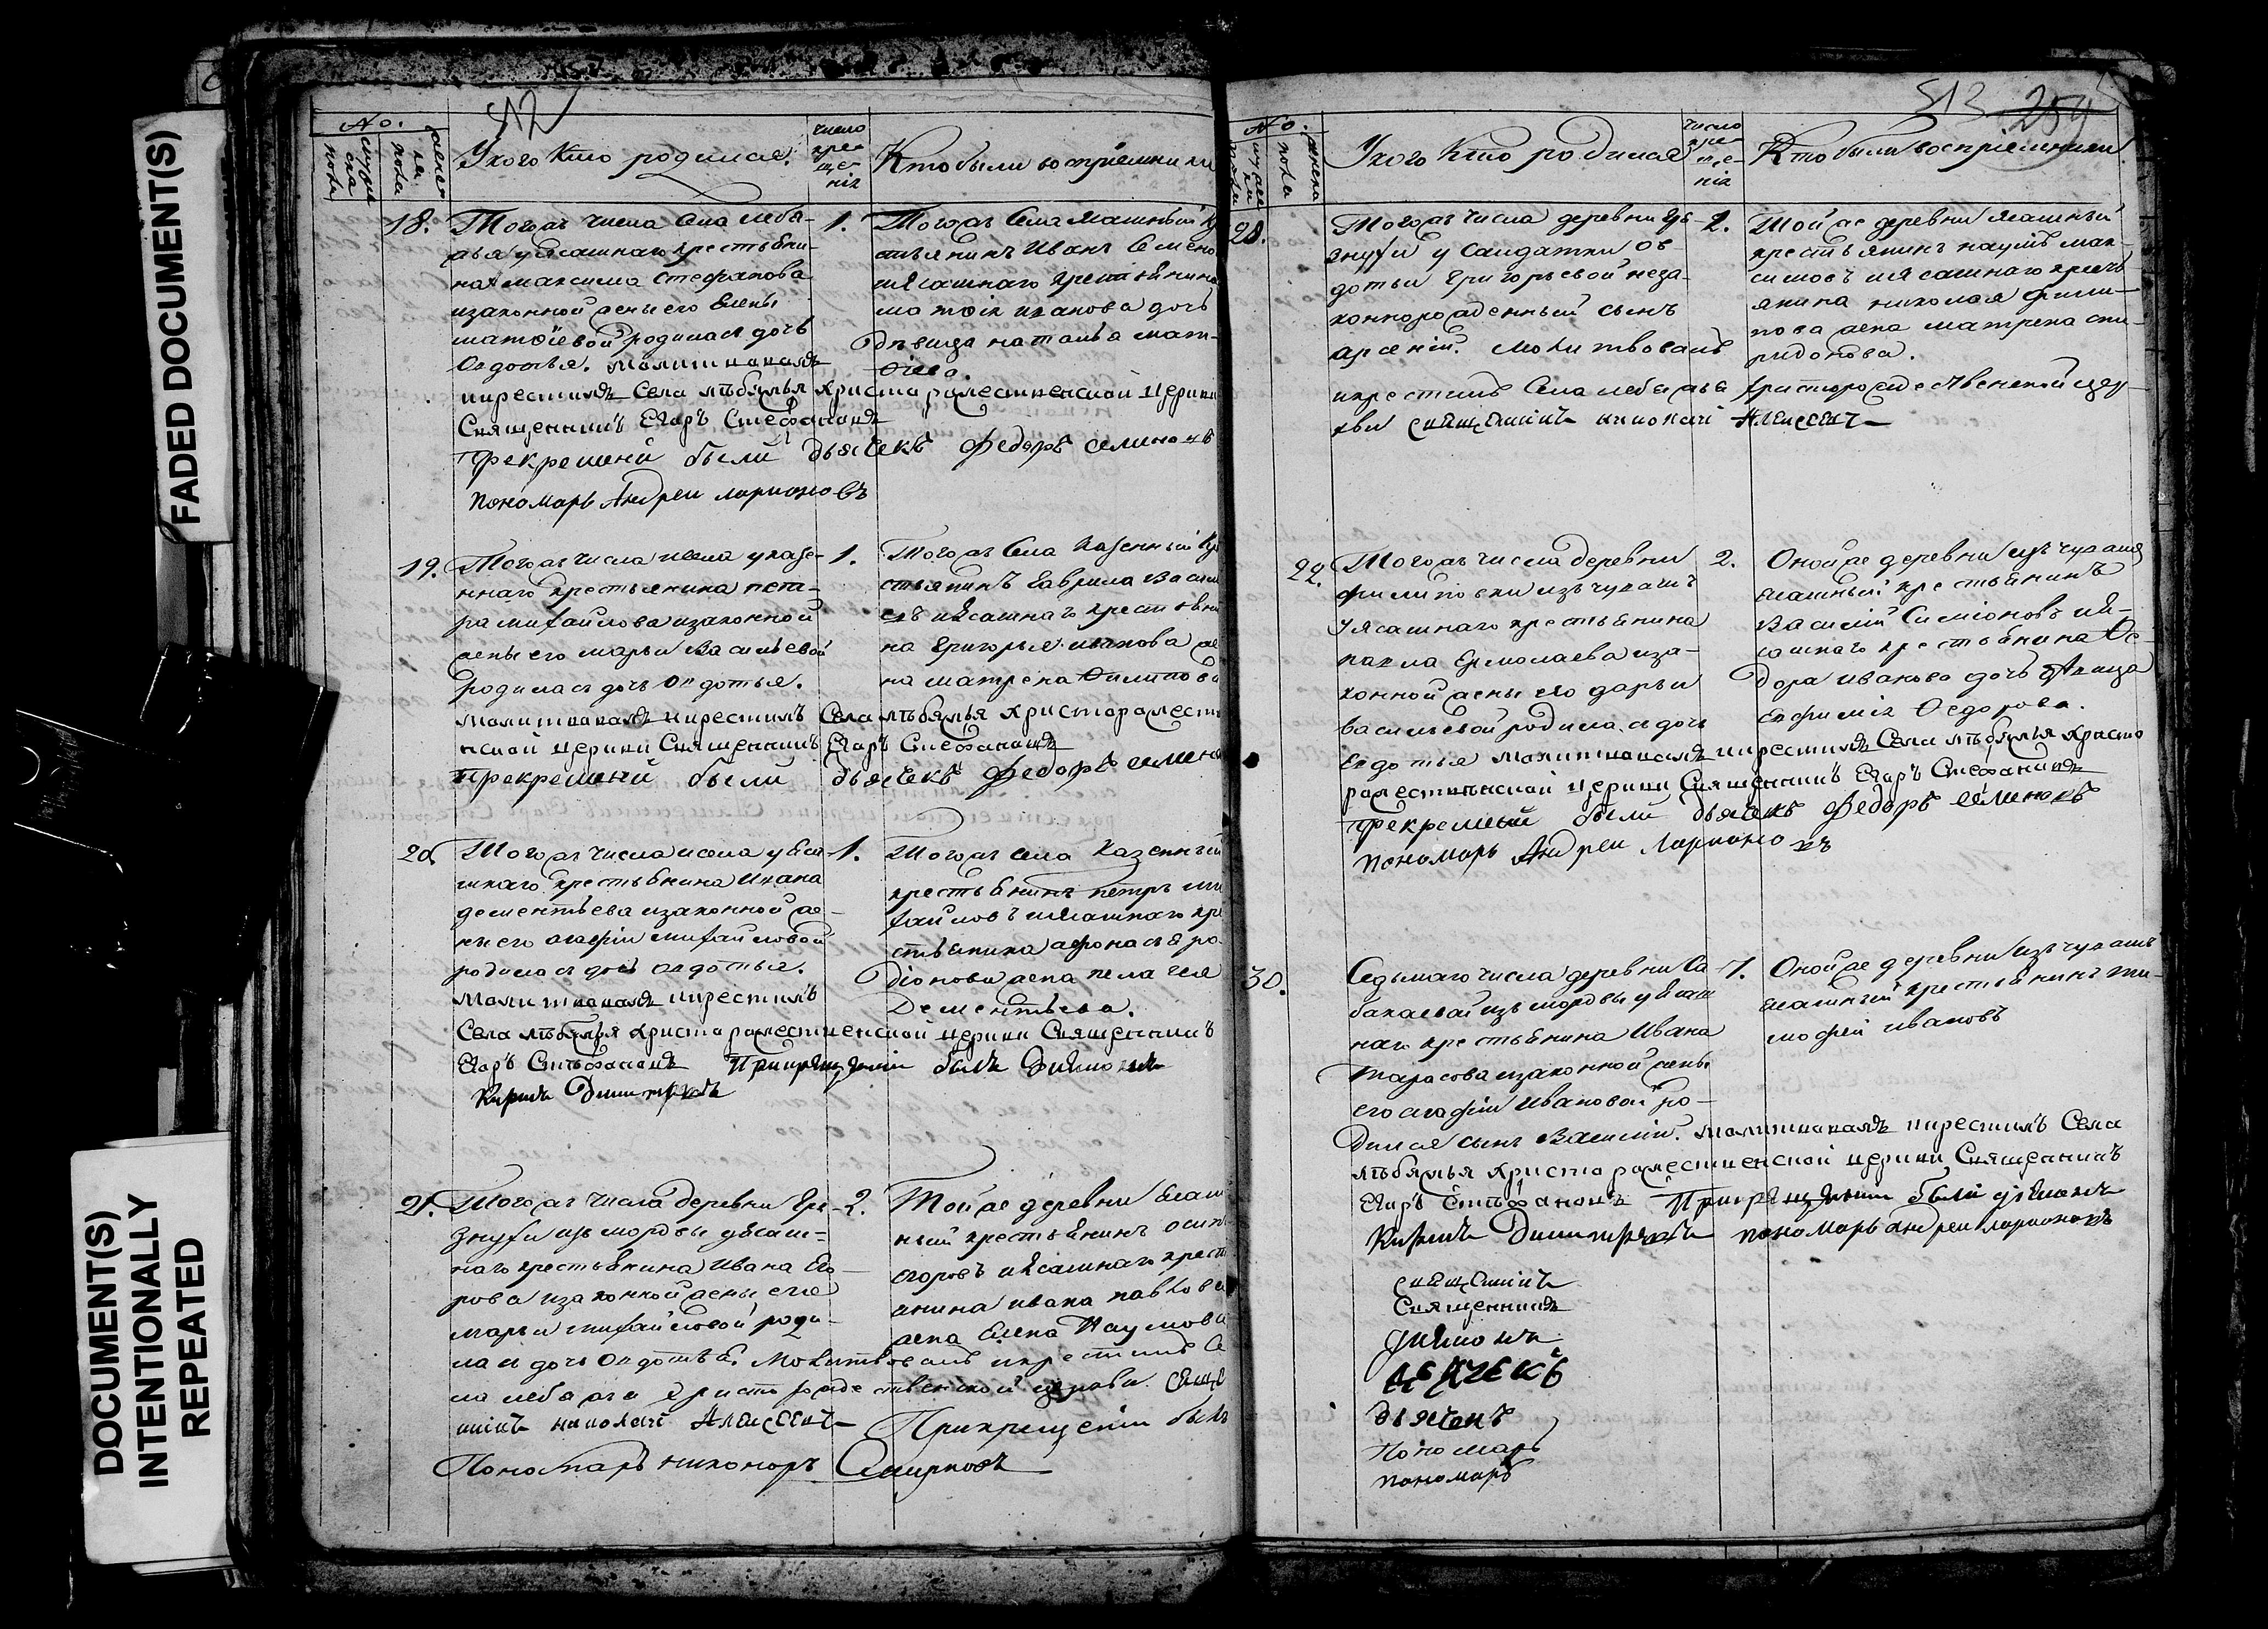 FADED DOCUMENT(S)
DOCUMENT(S)
INTENTIONALLY
REPEATED
512
No.
мужеска пола
женска пола
У кого кто родился.
число крещенія
Кто были восприемники
18.
Тогожъ числа села Леба-
жья у ясашнаго крестьяни-
на Максима Стефанова
изаконной жены его Елены
Матвѣевой родилася дочь
Овдотья. молитвовалъ
икрестилъ Села лѣбяжья христорожественской церкви
Священникъ Егоръ Стефановъ
При крещеніи были дьячекъ Федоръ семеновъ
пономарь Андреи ларионовъ
1.
Тогожъ села ясашный кр
стьянинъ Иванъ Семено
ияcашнаго крестьянина
матвѣя иванова дочь
Дѣвица наталья мат-
вѣева.
19.
Тогожъ числа исела указе-
ннаго крестьянина пет-
ра михайлова изаконной
жены его марьи Васильевой
родилась дочь овдотья.
молитвовалъ икрестилъ Села лѣбяжья христорожеств
нской церкви Священникъ Егоръ Стефановъ
При крещеніи были дьячекъ Федоръ семено
1.
Тогожъ села казенный кр
стьянинъ Гаврила Васил
евъ иясашнаго крестьяни
на Григорья иванова же
на матрена Филипова
20.
Тогожъ числа исела уяса
шнаго крестьянина ивана
дементьева изаконной же-
ны его агафіи михайловой
родилась дочь овдотья.
молитвовалъ икрестилъ
Села лѣбяжья христорожественской церкви Священникъ
Егоръ Стѣфановъ При крещеніи былъ дияконъ
Кирилъ Димитріевъ
1.
Тогожъ села казенный
крестьянинъ петръ ми
хайловъ иясашнаго кре
стьянина афонасья ро-
діонова жена пелагея
Дементьева.
21.
Тогожъ числа деревни Гря-
знухи изъ мордвы уясаш-
наго крестьянина Ивана Его-
рова изаконной жены его
марьи михайловой роди-
лась дочь овдотья. Молитвовалъ икрестилъ Се
ла лебяжья Христорождественской церкви. Свящѣ
нникъ николаи Алексеевъ При крещеніи былъ
Пономарь никоноръ Смирновъ
2.
Тойже деревни ясаш
ный крестьянинъ осипъ
егоровъ иясашнаго крест
янина ивана павлова
жена Елена Наумова
513 259
No.
мужеска пола
женска пола
У кого кто родился
число крещенія
Кто были восприемники
28.
Тогожъ числа деревни Гря-
знухи у салдатки ов
дотьи Григорьевой неза-
коннорожденный сынъ
арсеній. Молитвовалъ
икрестилъ Села лебяжья Христорождественской цер-
кви священникъ николай Алексеевъ
2.
Тойже деревни ясашный
крестьянинъ наумъ мак-
симовъ иясашнаго кресть
янина николая фили-
пова жена матрена спи-
ридонова.
22.
Тогожъ числа деревни
филиповки изъ чувашъ
уясашнаго крестьянина
павла Ермолаева иза-
конной жены его дарьи
васильевой родилася дочь
Евдотья молитвовалъ икрестилъ Села лѣбяжья христо
рожественской церкви Священникъ Егоръ Стефановъ
При крещеніи были дьячекъ Федоръ семеновъ
пономарь Андреи Ларионовъ
2.
Онойже деревни изъ чувашъ
ясашный крестьянинъ
Василій Симіоновъ ияс-
ашнаго крестьянина Ѳе-
дора иванова дочь девица
Евфимія Ѳедорова.
30.
Седьмаго числа деревни Са
бакаевай изъ мордвы уясаш
наго крестьянина Ивана
Тарасова изаконной жены
его агафіи Ивановой ро-
дился сынъ Василій. молитвовалъ икрестилъ Села
лѣбяжья христорожественской церкви Священникъ
Егоръ Стѣфановъ При крещеніи были діяконъ
Кирилъ Димитріевъ пономарь андреи ларионовъ
7.
Онойже деревни изъ чувашъ
ясашный крестьянинъ ти-
мофей ивановъ
священникъ
Священникъ
дияконъ
дьячекъ
дьячекъ
Пономарь
пономарь